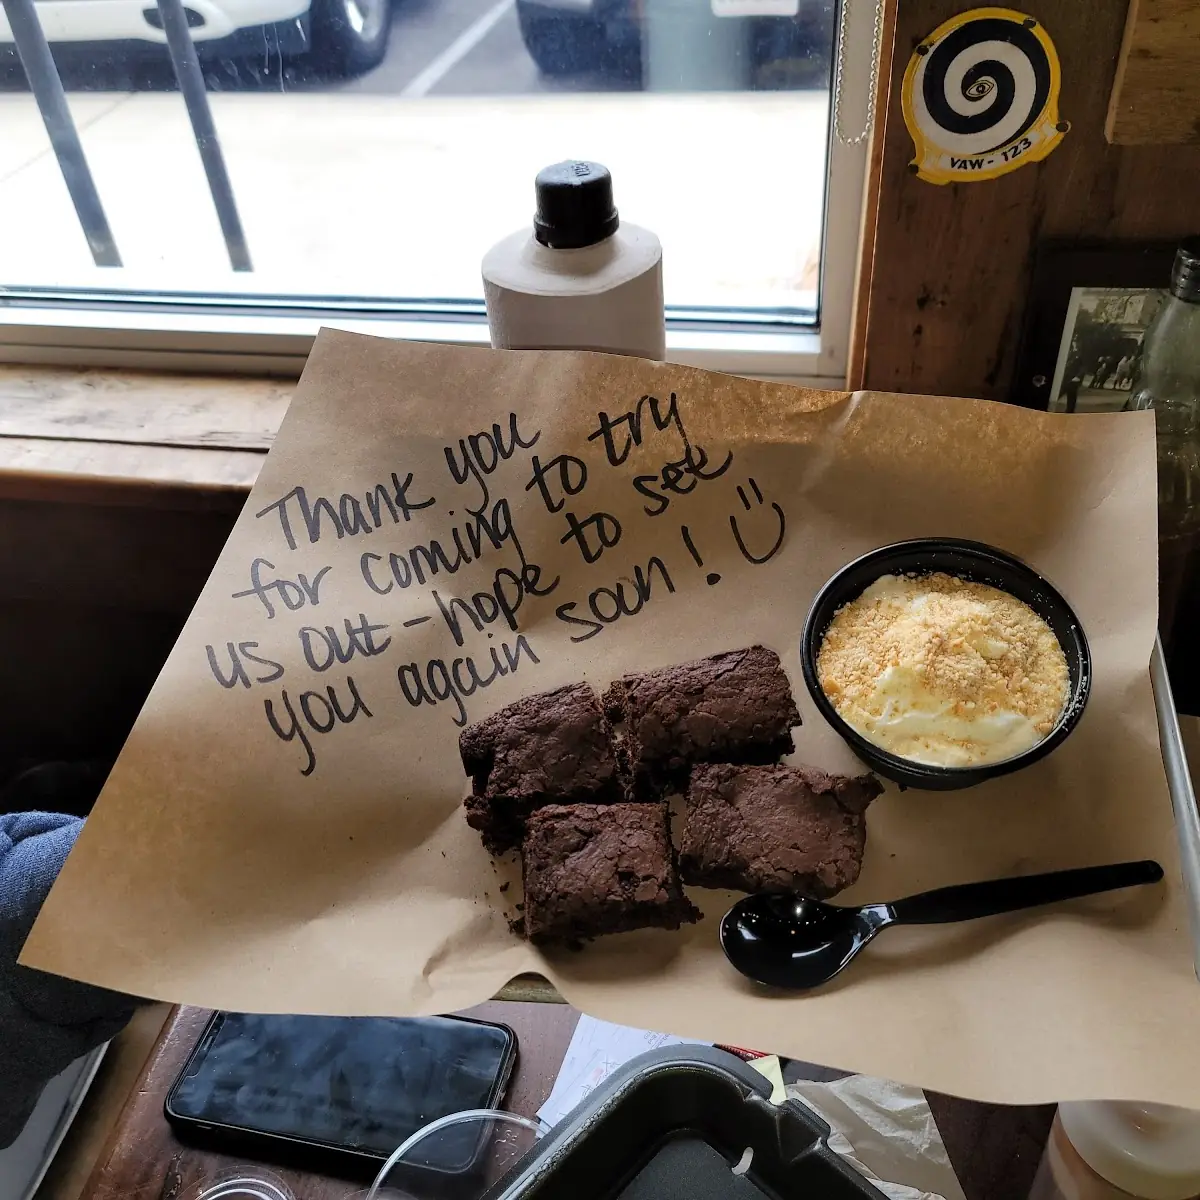 VAW-123
Thank you
for coming to try
us out - hope to see
you again soon! :)